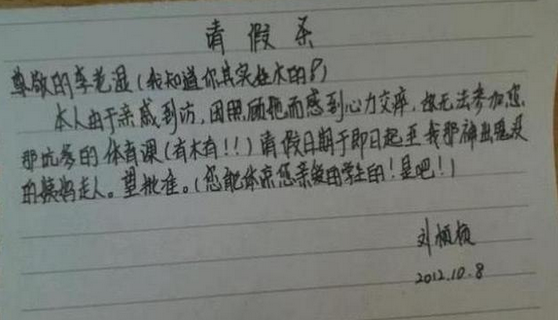 请假条
尊敬的李老湿(我知道你其实挺木的!)
本人由于亲戚到访,因照顾她而感到心力交瘁,故无法参加您
那坑爹的体育课(有木有!!)请假日期于即日起至我那神出鬼没
的姨妈走人。望批准。(您能体谅您亲爱的学生的!是吧!)
刘
2012.10.8